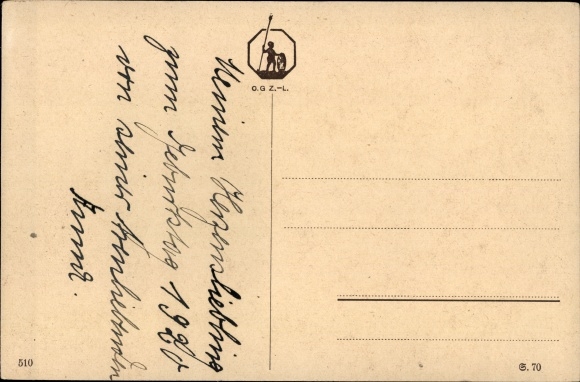 Meinem Herzensliebling
zum Geburtstag 1920
von seiner treuliebenden
Anna.
O.G.Z.-L.
510
S. 70